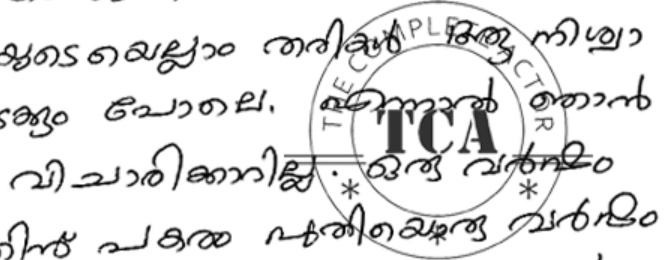 യുടെയെല്ലാം തരികൾ ഒരു നിശ്വാ
പോലെ. എന്നാൽ ഞാൻ
വിചാരിക്കാറില്ല. ഒരു വർഷം
പകരം പുതിയൊരു വർഷം
THE COMPLETE ACTOR
TCA